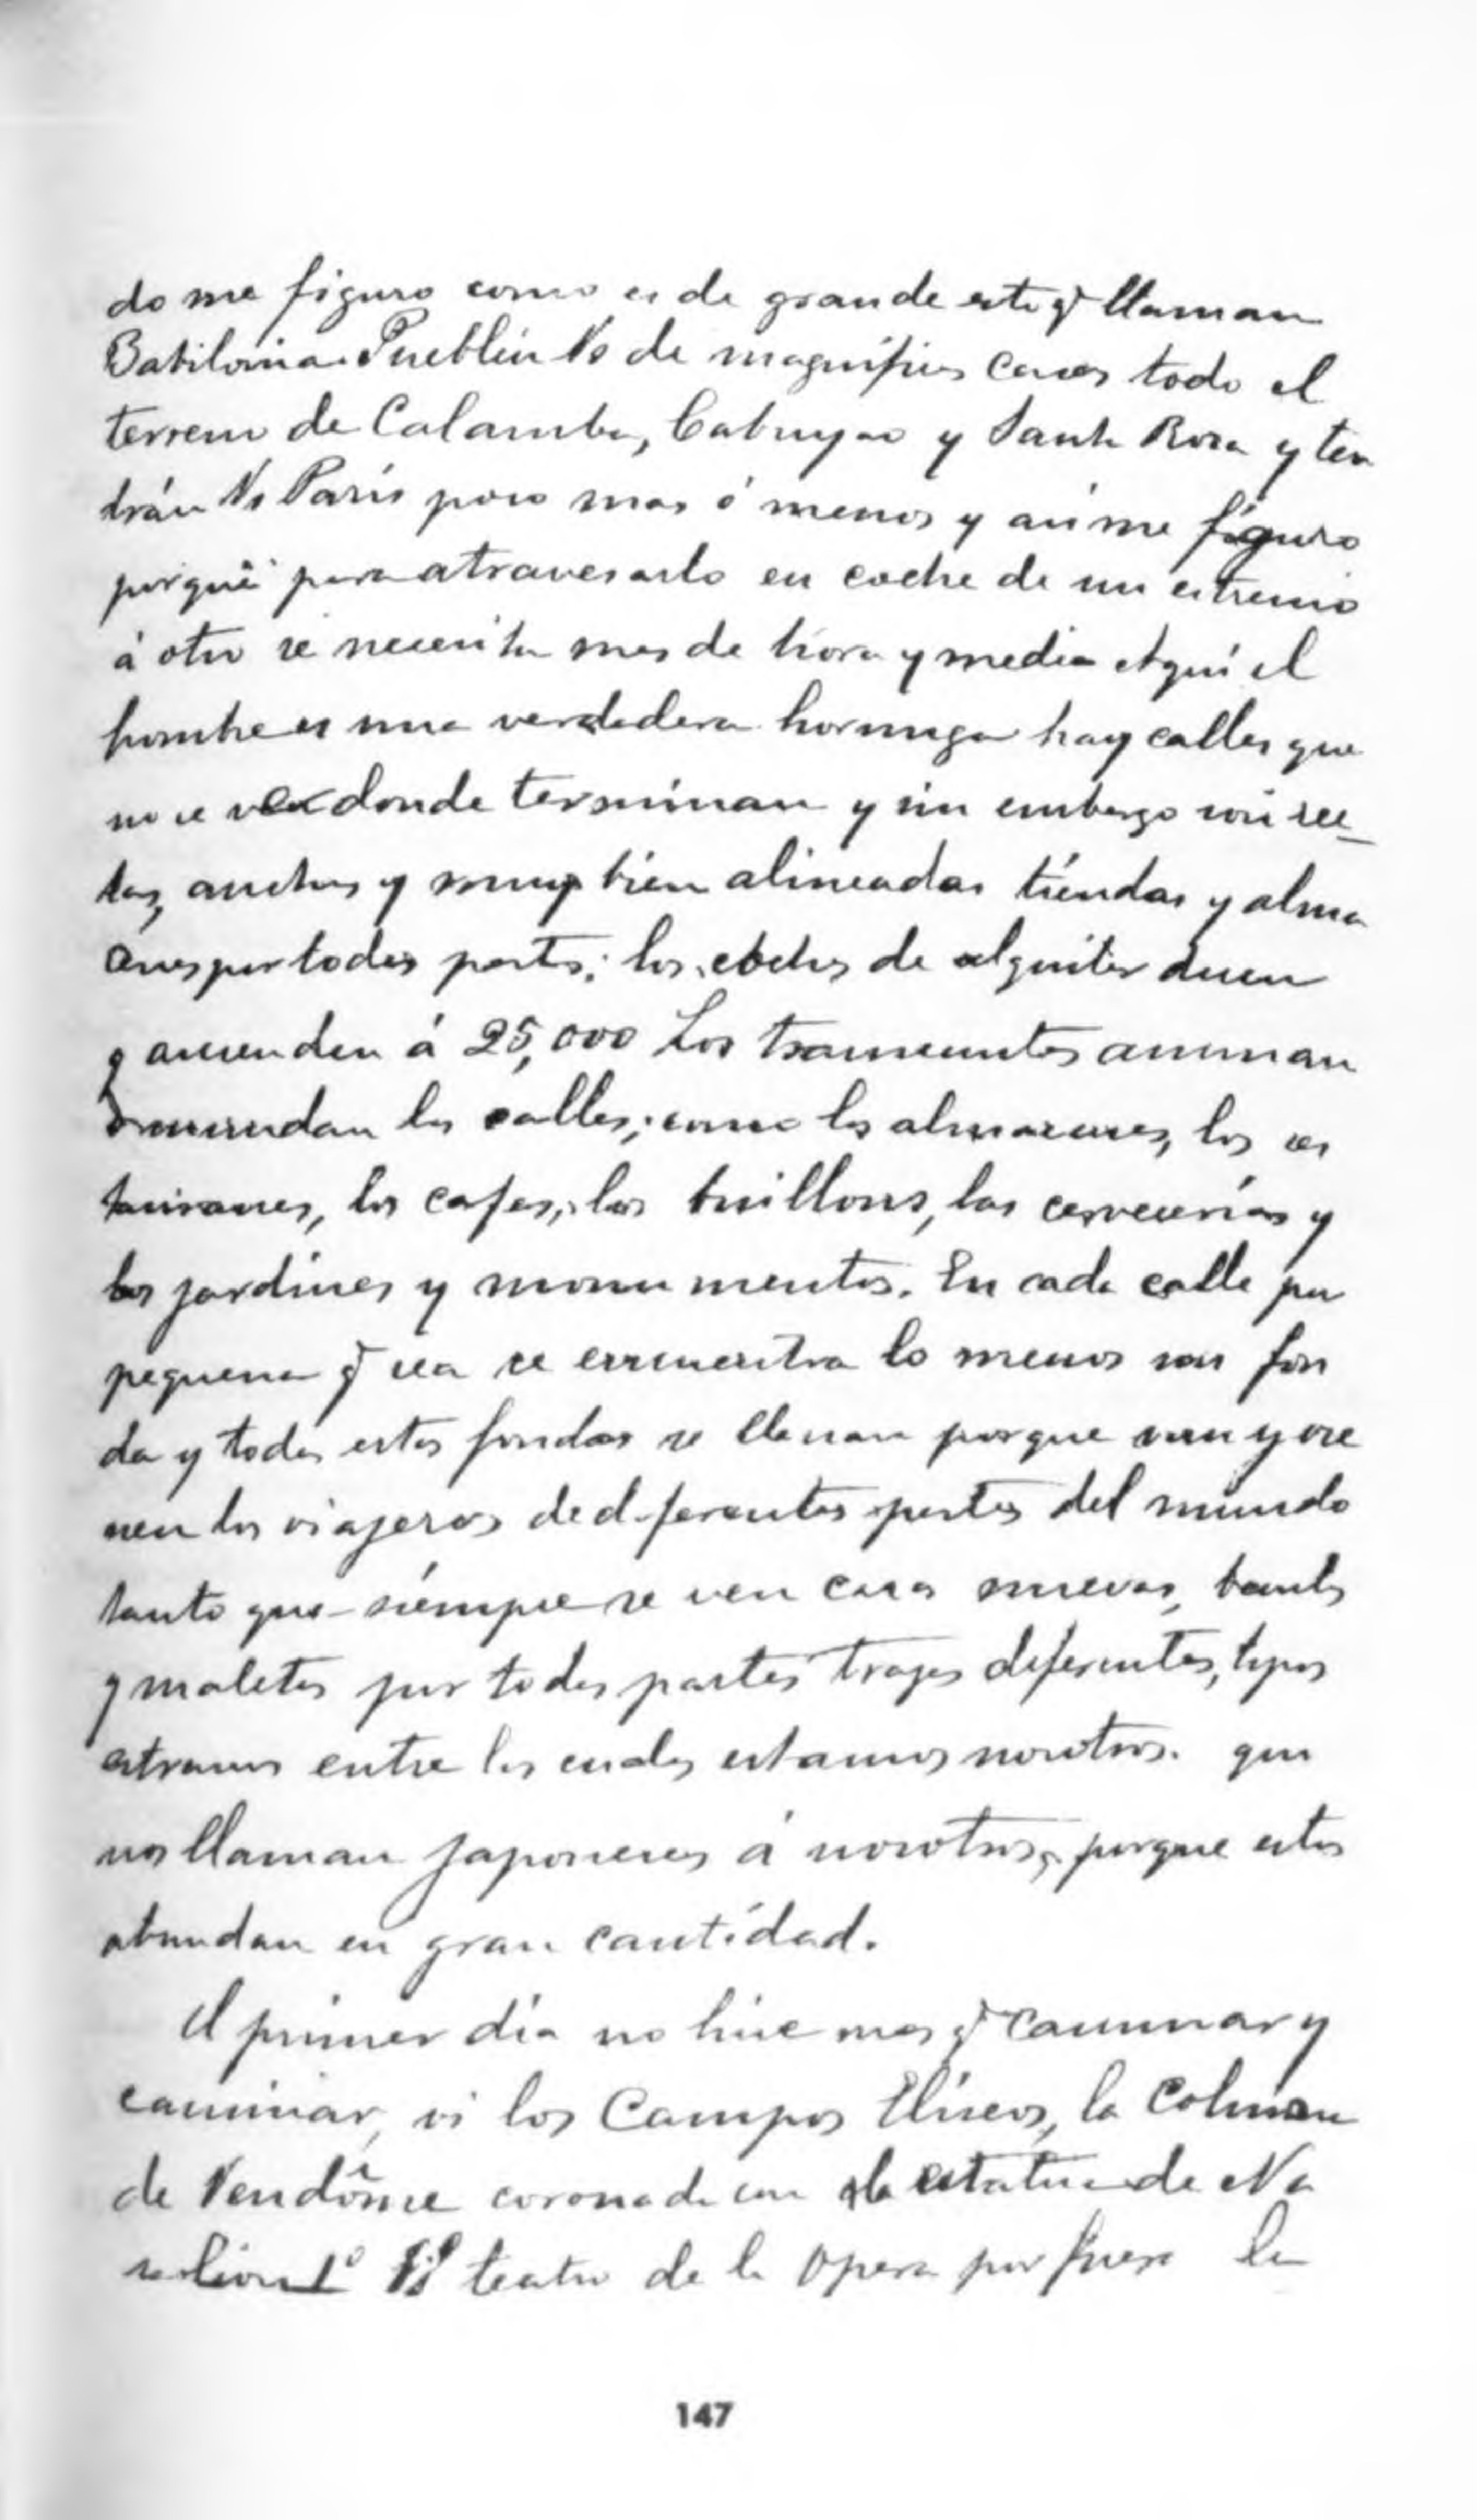 do me figuro como es de grande este q̃ llaman
Babilonia. Pueblen Vs de magníficas casas todo el
terreno de Calamba, Cabuyao y Santa Rosa y ten
drán Vs Paris poco mas ó menos y asi me figuro
porqué para atravesarlo en coche de un estremo
á otro se necesita mas de hora y media Aquí el
hombre es una verdadera hormiga hay calles que
no se vé donde terminan y sin embargo son rec-
tas, anchas y muy bien alineadas tiendas y alma
cenes por todas partes; los coches de alquiler dicen
q ascienden á 25,000 Los transeuntes animan
é inundan las calles, como los almacenes, los res
tauranes, los cafes, los buillons, las cervecerías y
los jardines y monumentos. En cada calle por
pequeña q̃ sea se encuentra lo menos una fon
da y todas estas fondas se llenan porque van y vie
nen los viajeros de diferentes partes del mundo
tanto que siempre se ven caras nuevas, bauls
y maletas por todas partes trages diferentes, tipos
estraños entre los cuales estamos nosotros. que
nos llaman Japoneses á nosotros, porque estos
abundan en gran cantidad.
El primer día no hice mas q̃ caminar y
caminar, vi los Campos Elíseos, la Coluna
de Vendôme coronada con la estatua de Na
poleon 1º El teatro de la Opera por fuera la
147